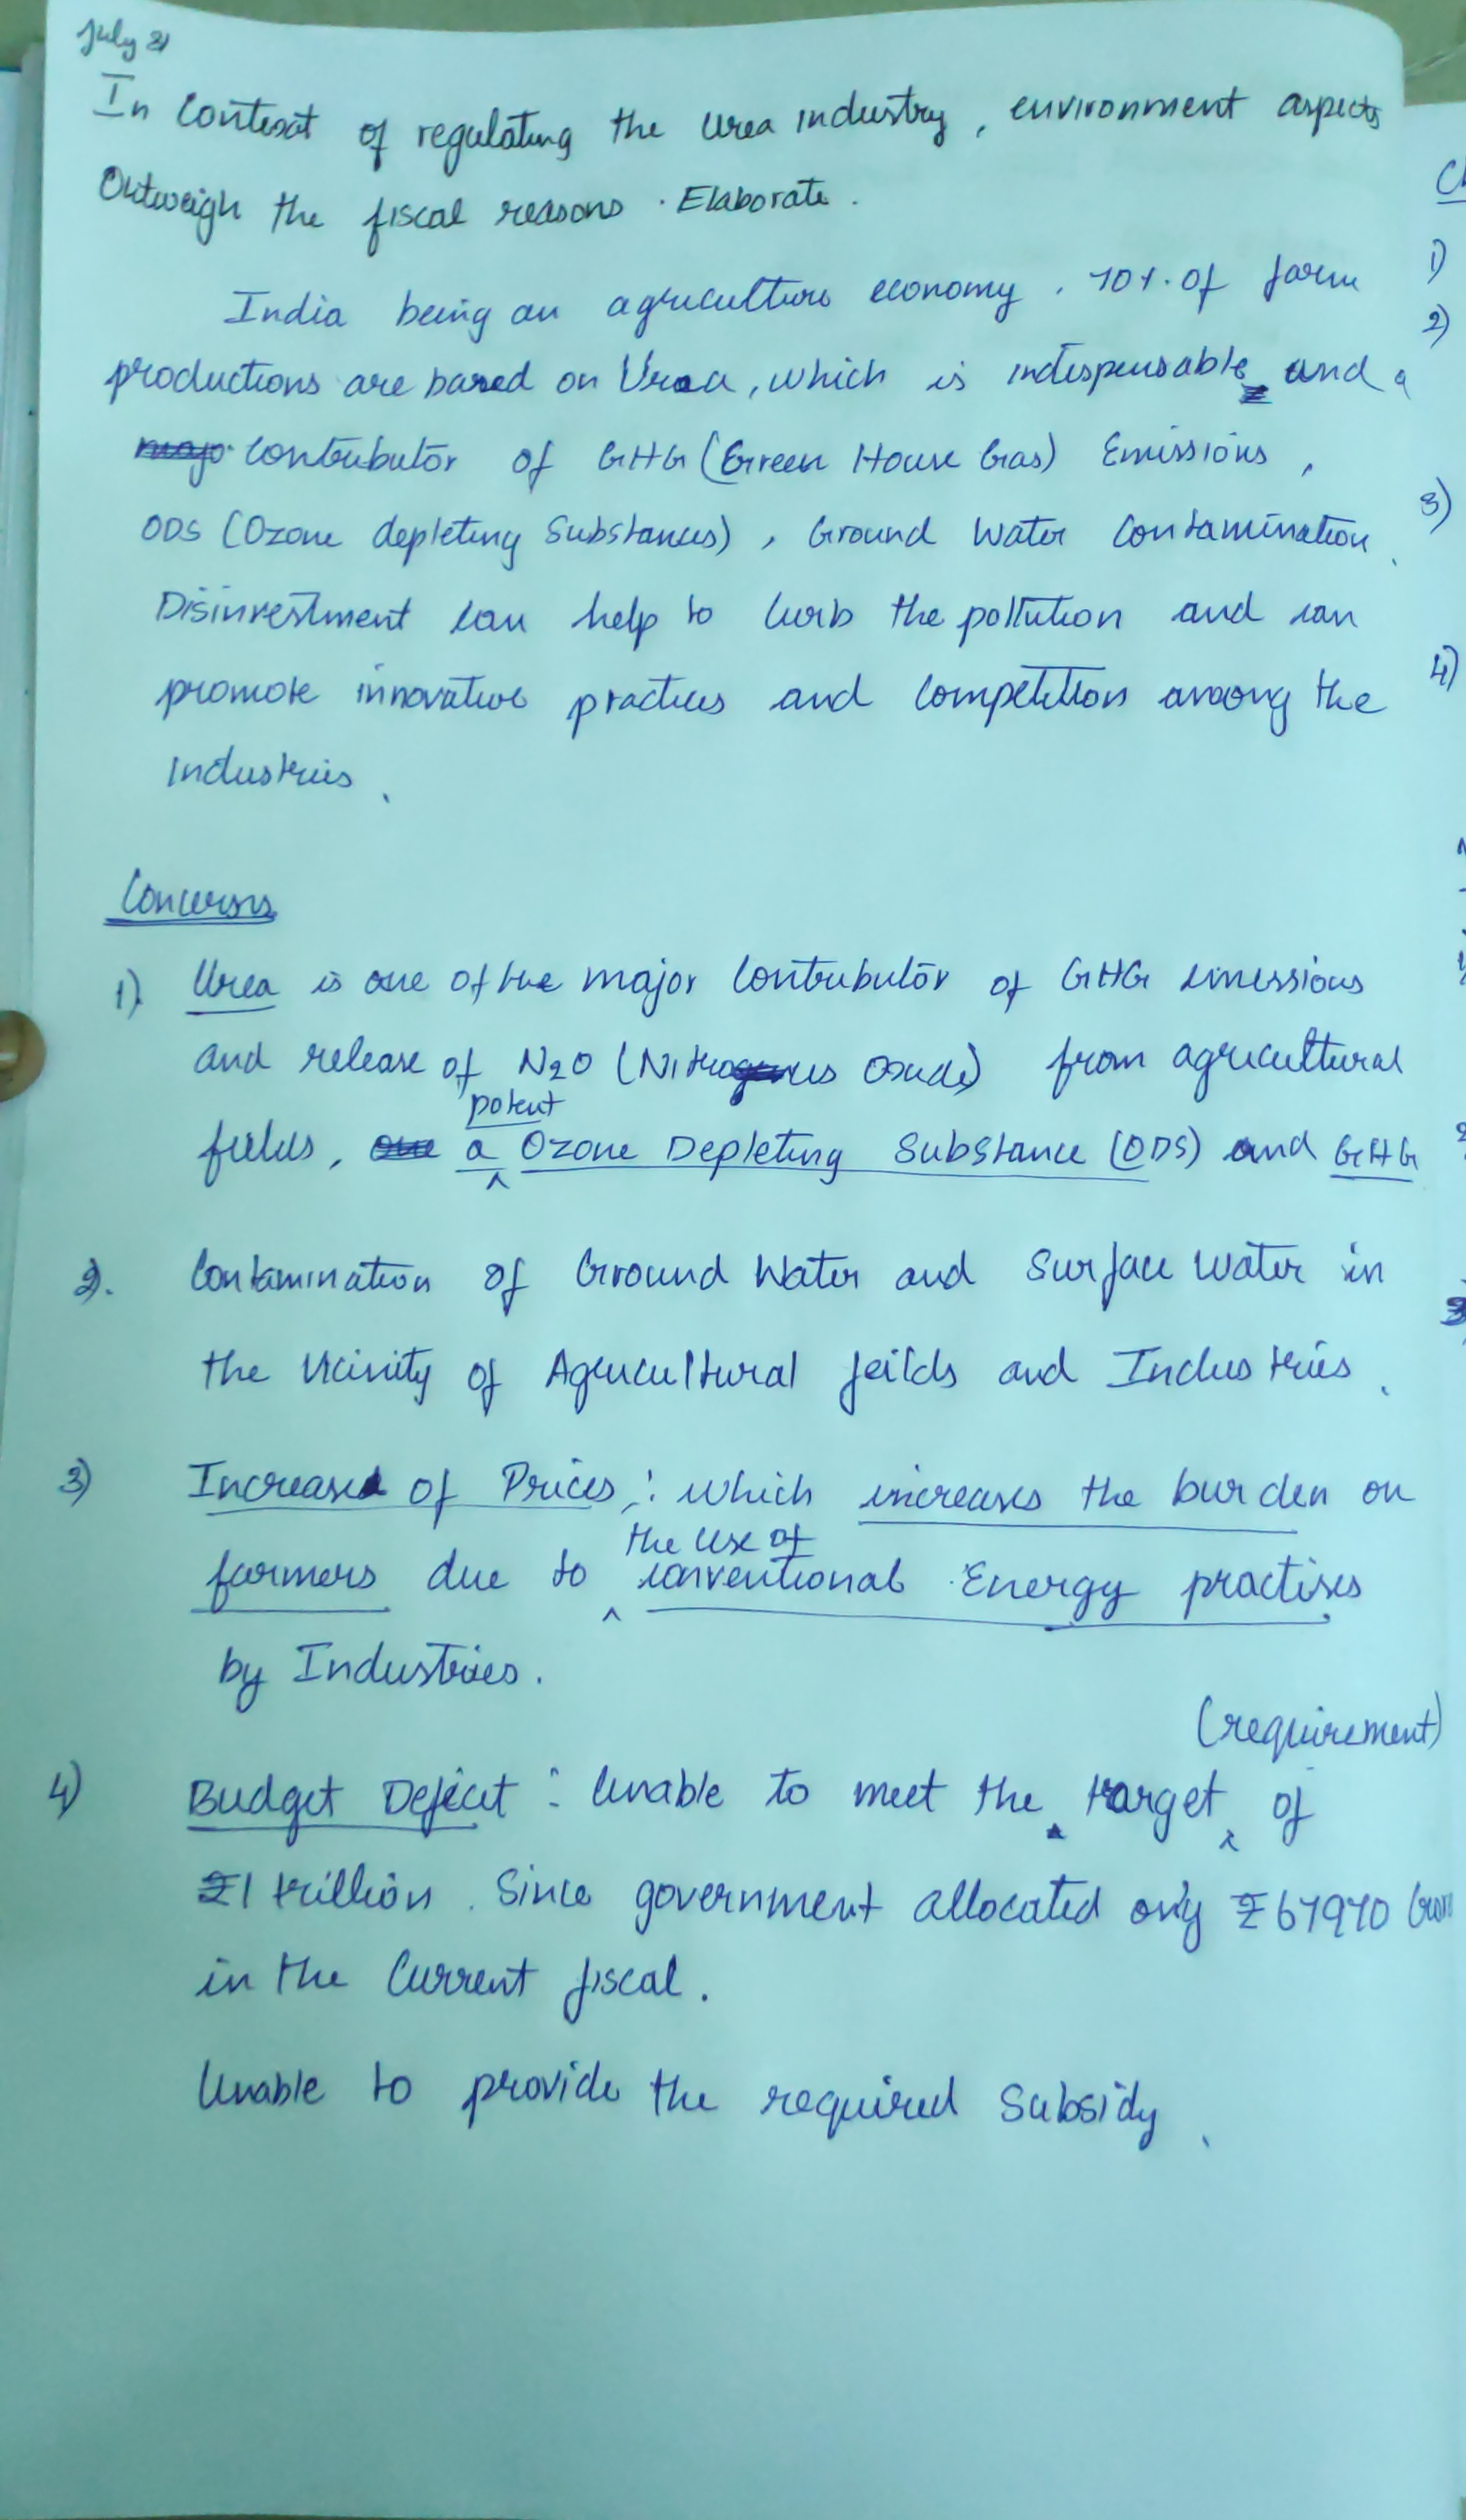 July 21
In Context of regulating the Urea industry, environment aspects
Outweigh the fiscal reasons. Elaborate.
India being an agriculture economy, 70% of farm
productions are based on Urea, which is indispensable and a
contributor of GHG (Green House Gas) Emissions,
ODS (Ozone depleting Substances), Ground Water Contamination.
Disinvestment can help to Curb the pollution and can
promote innovative practices and Competition among the
Industries.
Concerns
1) Urea is one of the major Contributor of GHG emissions
and release of N2O (Nitrous Oxide) from agricultural
fields, a potent Ozone Depleting Substance (ODS) and GHG
2. Contamination of Ground Water and Surface Water in
the Vicinity of Agricultural feilds and Industries.
3) Increase of Prices: which increases the burden on
farmers due to the use of conventional Energy practises
by Industries.
4) Budget Deficit: Unable to meet the target (requirement) of
₹1 trillion. Since government allocated only ₹67970
in the Current fiscal.
Unable to provide the required Subsidy.
1)
2)
3)
4)